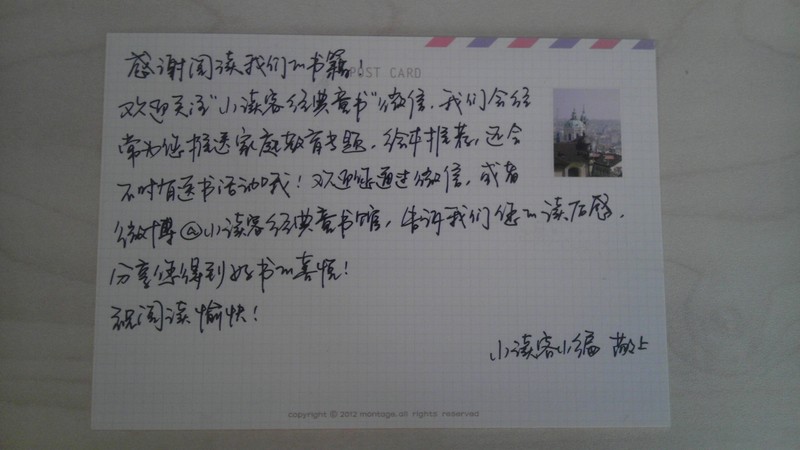 感谢阅读我们的书籍!
POST CARD
欢迎关注"小读客经典童书"微信,我们会经
常为您推送家庭教育专题,绘本推荐,还会
不时有送书活动哦!欢迎您通过微信,或者
微博@小读客经典童书馆,告诉我们您的读后感,
分享您得到好书的喜悦!
祝阅读愉快!
小读客小编 敬上
copyright © 2012 montage. all rights reserved